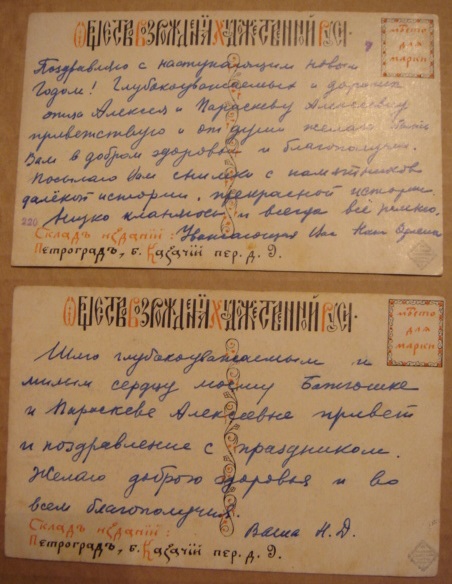 Общество Возрождения Художественной Руси.
9
место
для
марки
Поздравляю с наступающим новым
Годом! Глубокоуважаемых и дорогих
отца Алексея и Параскеву Алексеевну
приветствую и от души желаю
Вам в добром здоровьи и благополучии.
Посылаю Вам снимки с памятников
далёкой истории, прекрасной истории.
Низко кланяюсь и всегда всё помню.
220
Складъ изданій: Уважающая Вас
Петроградъ, б. Казачій пер. д. 9.
Общество Возрождения Художественной Руси.
место
для
марки
Шлю глубокоуважаемым и
милым сердцу моему Батюшке
и Параскеве Алексеевне привет
и поздравление с праздником.
Желаю доброго здоровья и во
всем благополучия.
Складъ изданій: Ваша Н.Д.
Петроградъ, б. Казачій пер. д. 9.